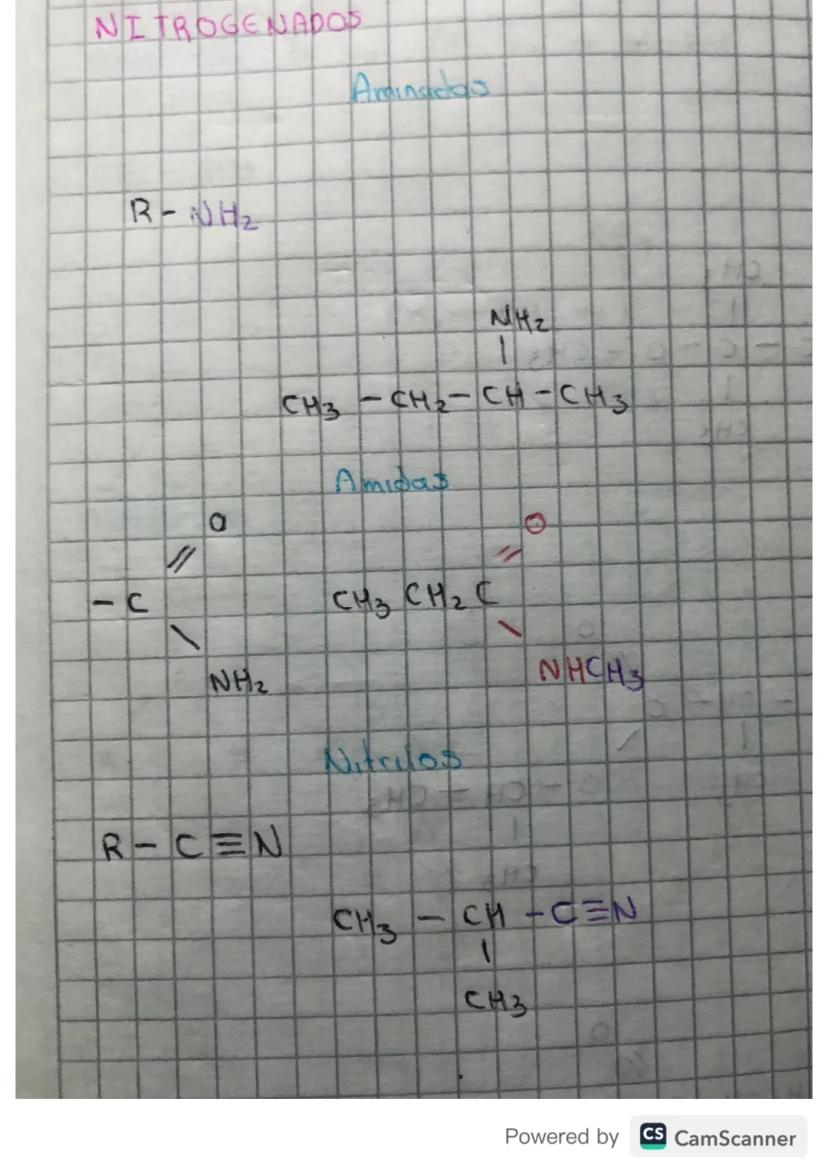 NITROGENADOS
Aminadas
R - NH2
NH2
|
CH3 - CH2 - CH - CH3
Amidas
O O
// //
- C CH3 CH2 C
\ \
NH2 NHCH3
Nitrilos
R - C ≡ N
CH3 - CH - C ≡ N
|
CH3
Powered by CS CamScanner